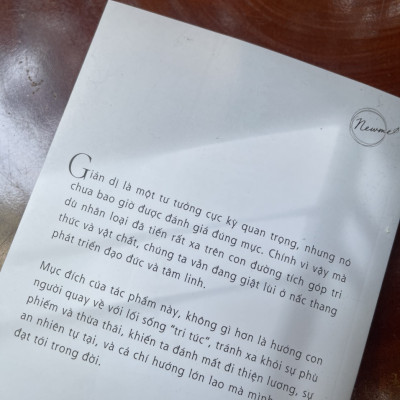 Newme
Giản dị là một tư tưởng cực kỳ quan trọng, nhưng nó
chưa bao giờ được đánh giá đúng mục. Chính vì vậy mà
dù nhân loại đã tiến rất xa trên con đường tích góp tri
thức và vật chất, chúng ta vẫn đang giật lùi ở nấc thang
phát triển đạo đức và tâm linh.
Mục đích của tác phẩm này, không gì hơn là hướng con
người quay về với lối sống "tri túc", tránh xa khỏi sự phù
phiếm và thừa thãi, khiến ta đánh mất đi thiện lương, sự
an nhiên tự tại, và cả chí hướng lớn lao mà mình
đạt tới trong đời.